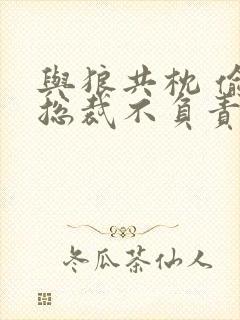 與狼共枕 偷
总裁不負責
冬瓜茶仙人